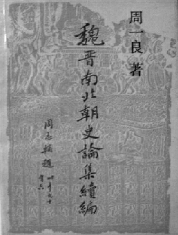 周一良 著
魏晋南北朝史論集續編